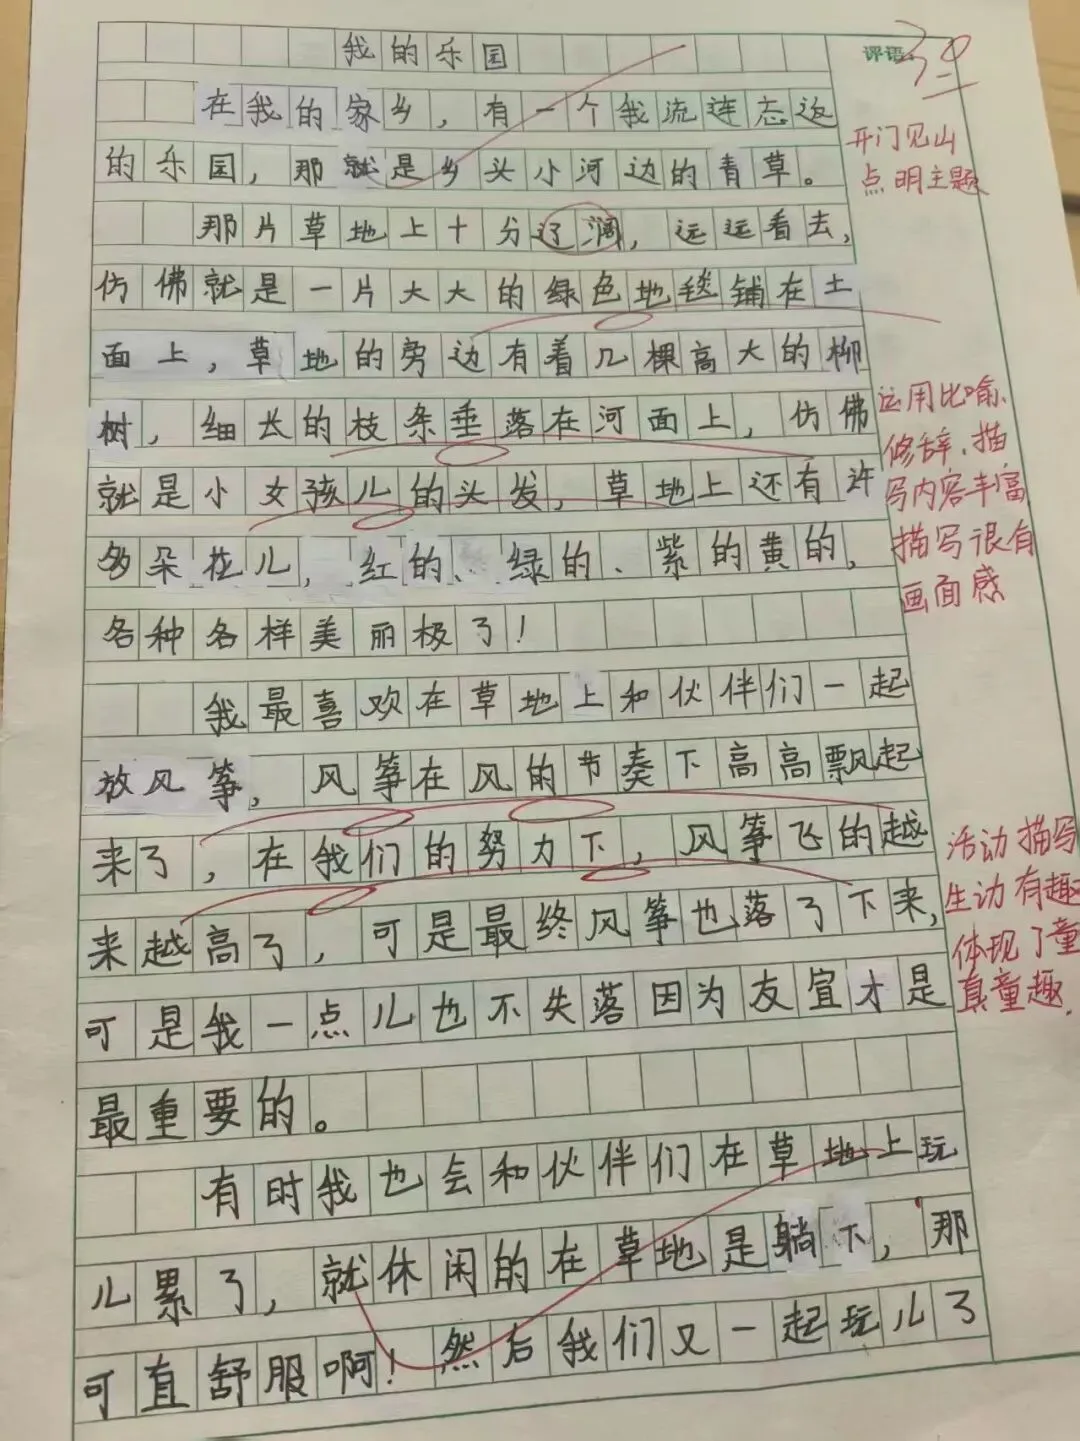 我的乐园
评语:
30
在我的家乡，有一个我流连忘返
开门见山
的乐园，那就是乡头小河边的青草。
点明主题
那片草地上十分辽阔，远远看去，
仿佛就是一片大大的绿色地毯铺在土
面上，草地的旁边有着几棵高大的柳
树，细长的枝条垂落在河面上，仿佛
运用比喻、
修辞、描
就是小女孩儿的头发，草地上还有许
写内容丰富
多朵花儿，红的、绿的、紫的黄的，
描写很有
画面感
各种各样美丽极了！
我最喜欢在草地上和伙伴们一起
放风筝，风筝在风的节奏下高高飘起
来了，在我们的努力下，风筝飞的越
活动描写
生动有趣
来越高了，可是最终风筝也落了下来，
体现了童
真童趣.
可是我一点儿也不失落因为友宜才是
最重要的。
有时我也会和伙伴们在草地上玩
儿累了，就休闲的在草地是躺下，那
可直舒服啊！然后我们又一起玩儿了